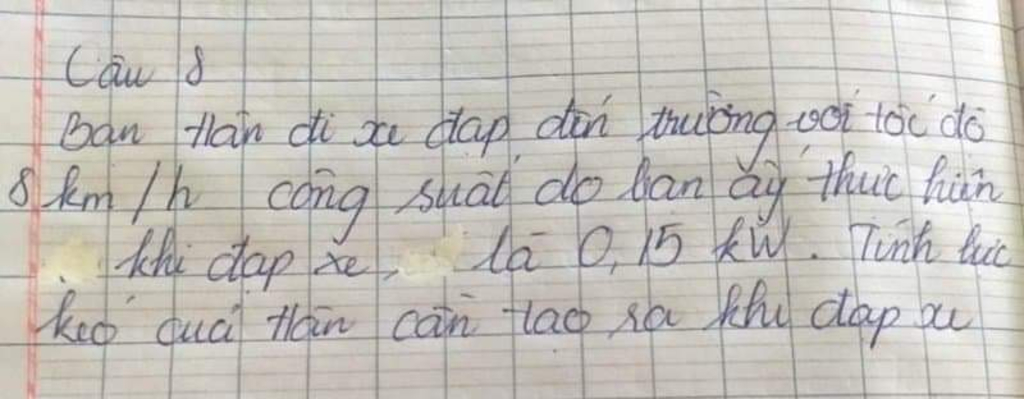 Câu 8
Bạn Hân đi xe đạp đến trường với tốc độ
8 km/h công suất do bạn ấy thực hiện
khi đạp xe, là 0,15 kW. Tính lực
kéo quả Hân cần tạo ra khi đạp xe